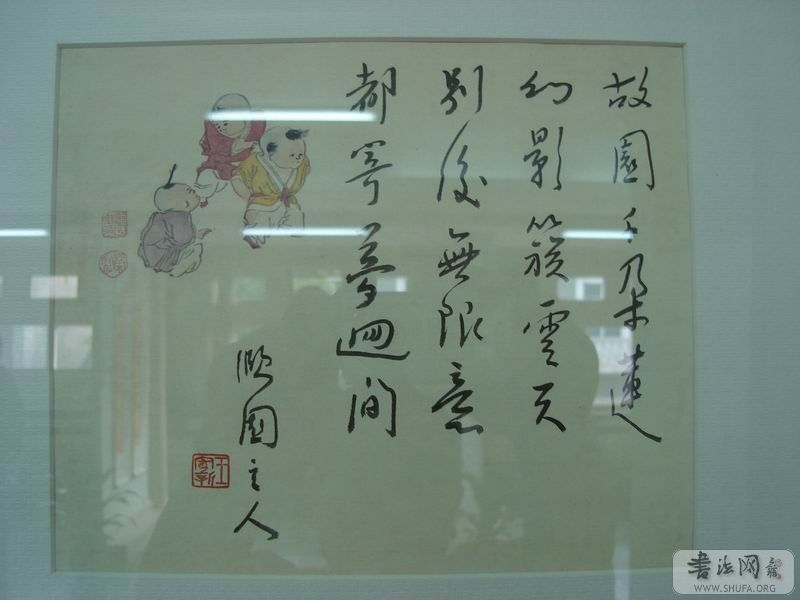 故園千朵蓮
幻影簇雲天
別後無限意
都寄夢迴間
園主人
書法网
WWW.SHUFA.ORG